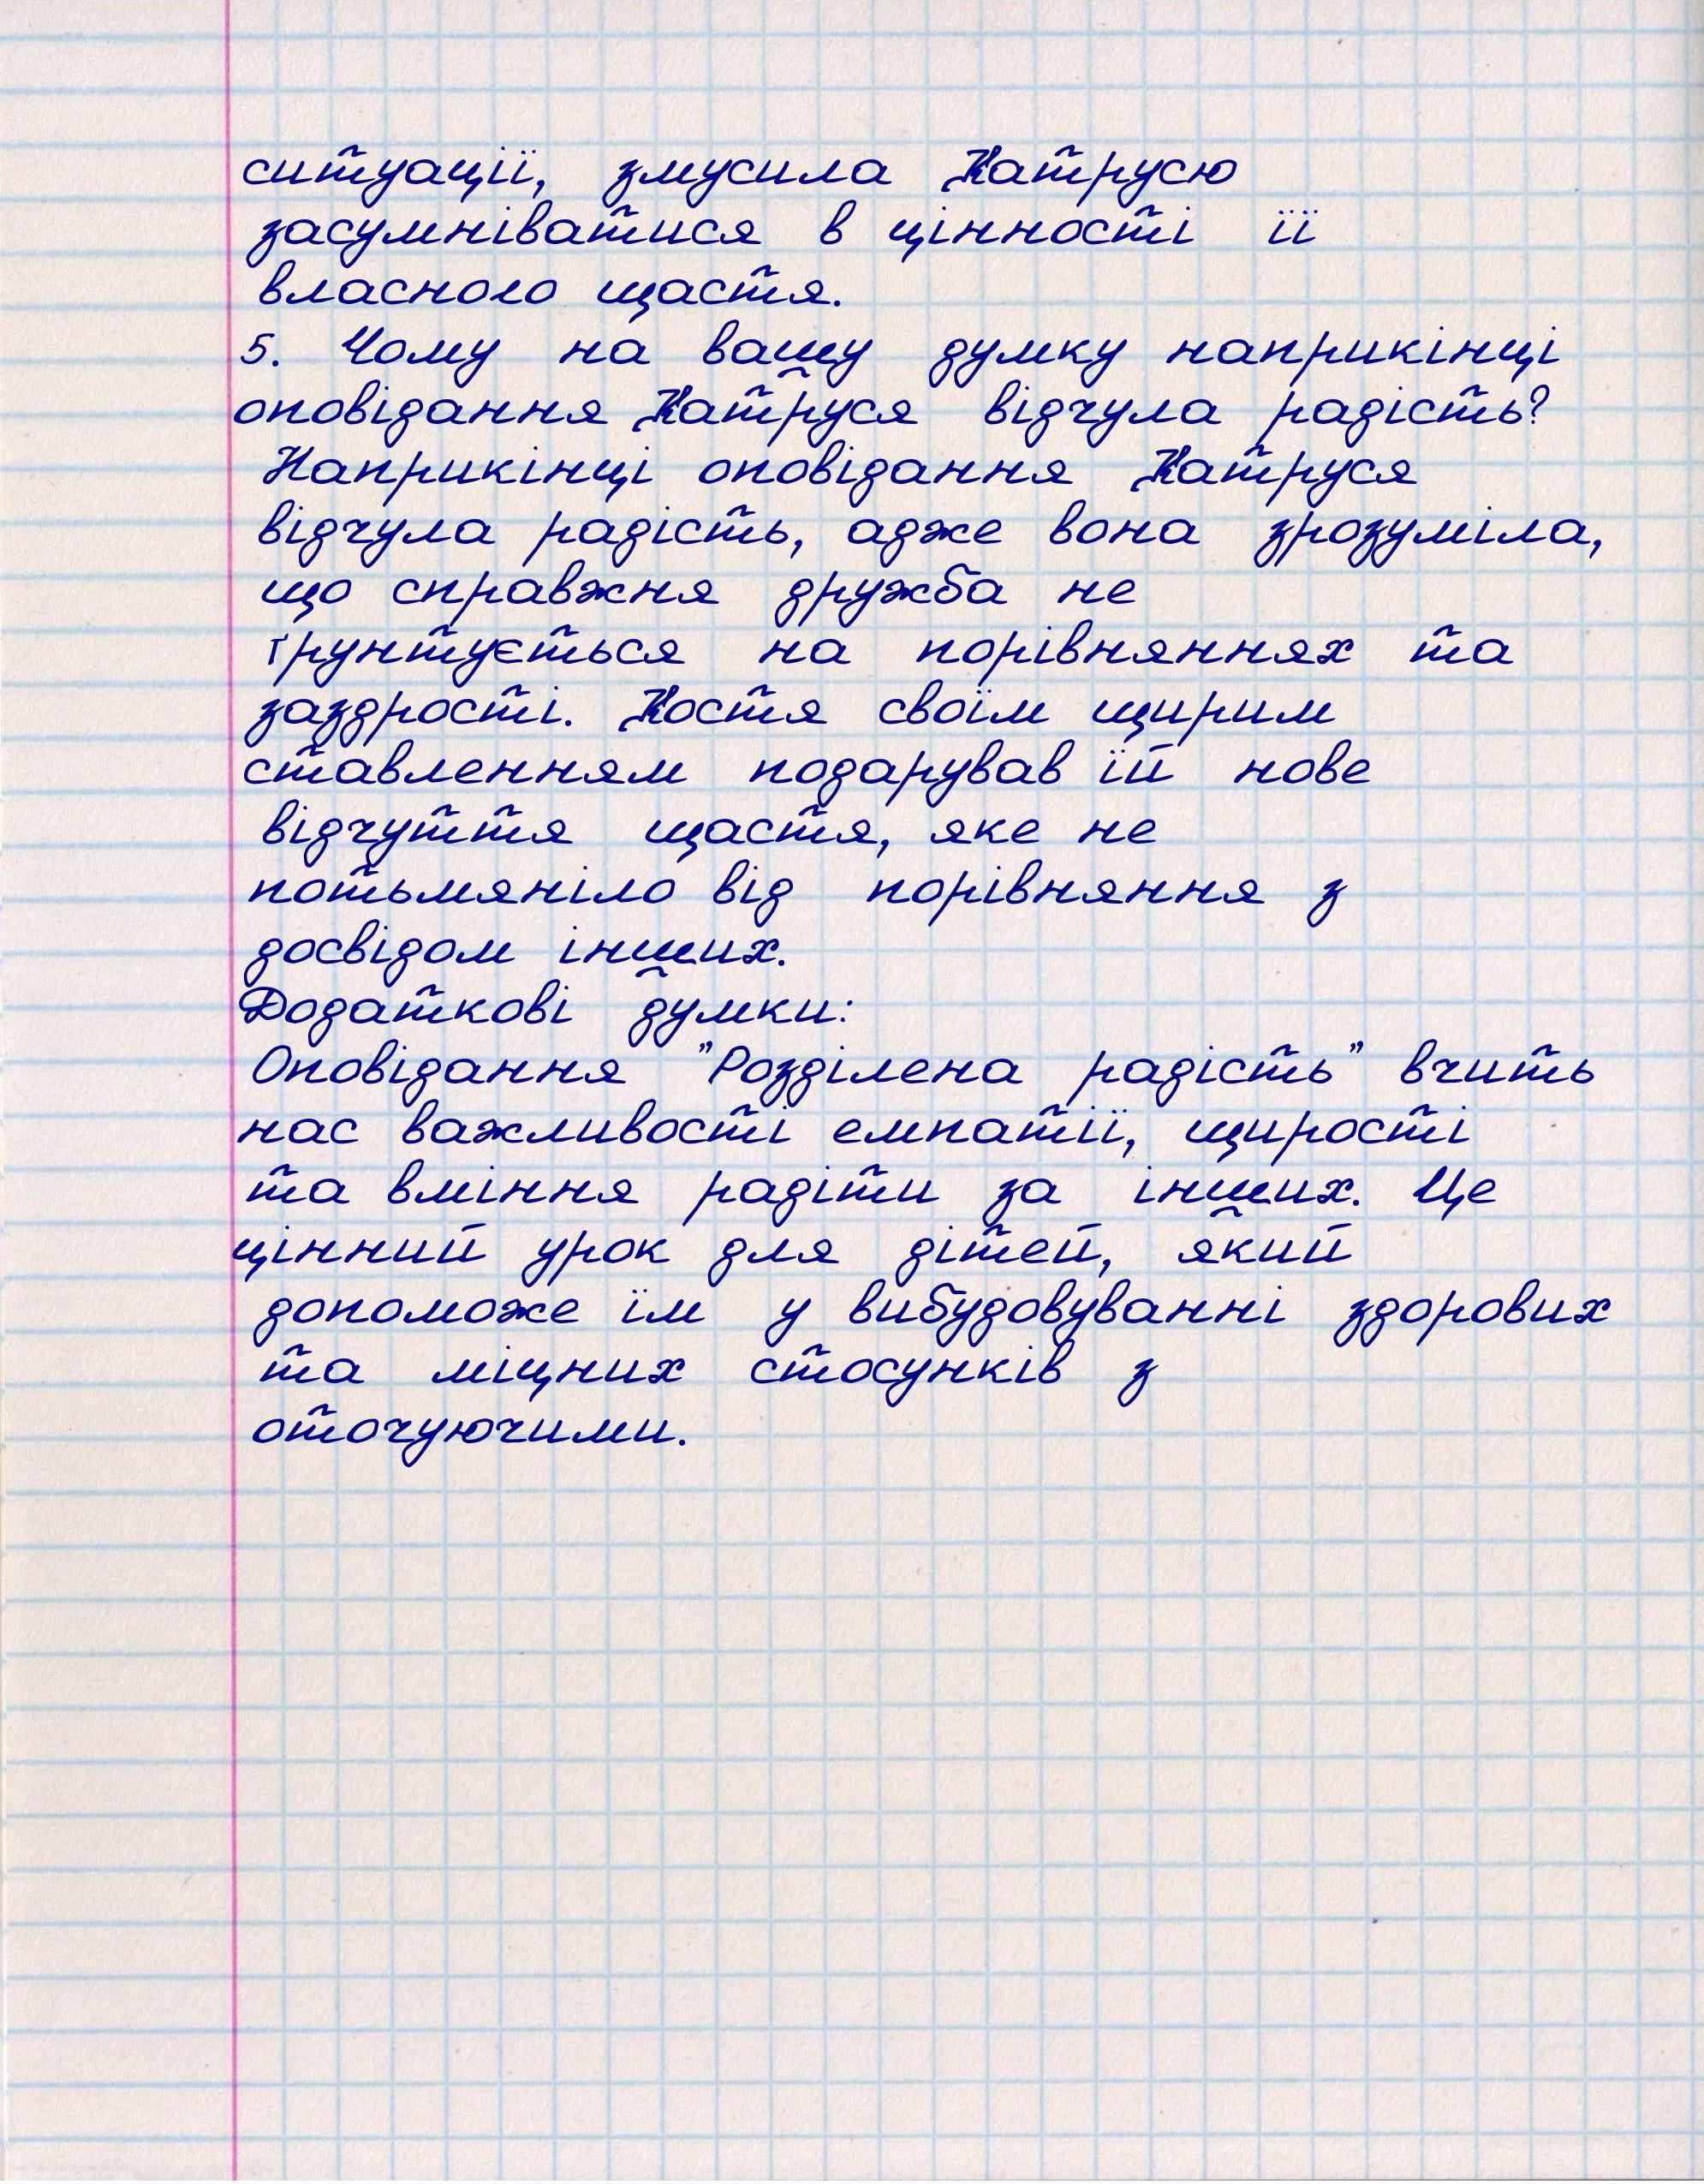 ситуації, змусила Катрусю
засумніватися в цінності її
власного щастя.
5. Чому на вашу думку наприкінці
оповідання Катруся відчула радість?
Наприкінці оповідання Катруся
відчула радість, адже вона зрозуміла,
що справжня дружба не
ґрунтується на порівняннях та
заздрості. Костя своїм щирим
ставленням подарував їй нове
відчуття щастя, яке не
потьмяніло від порівняння з
досвідом інших.
Додаткові думки:
Оповідання "Розділена радість" вчить
нас важливості емпатії, щирості
та вміння радіти за інших. Це
цінний урок для дітей, який
допоможе їм у вибудовуванні здорових
та міцних стосунків з
оточуючими.